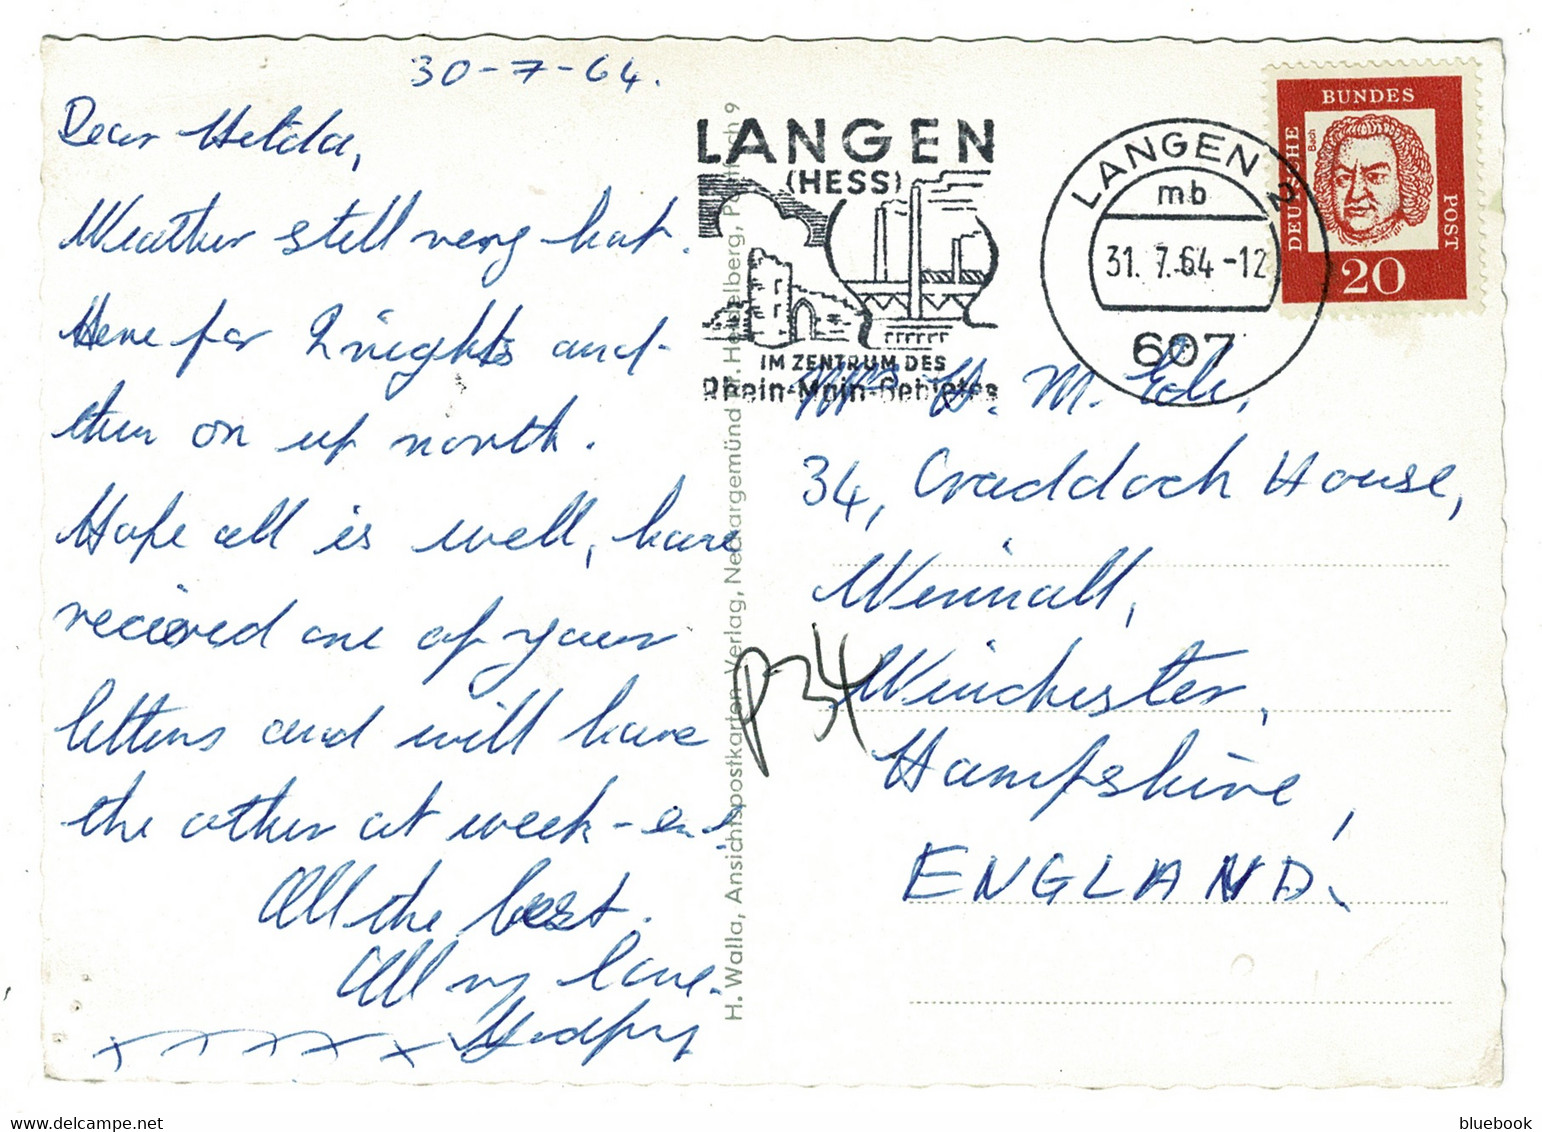 30-7-64.
Dear Hilda,
Weather still very hot.
Here for 2 nights and
then on up north.
Hope all is well, have
recieved one of your
letters and will have
the other at week-end
All the best.
All my love.
H. Walla, Ansichtspostkarten-Verlag, Neckargemünd Heidelberg, 9
LANGEN
(HESS)
IM ZENTRUM DES
Rhein-Main-Gebietes
LANGEN 2
mb
31. 7.64-12
607
DEUTSCHE
BUNDES
POST
Bach
20
Mrs H. M. Ede,
34, Craddock House,
Winnall,
Winchester,
Hampshire,
ENGLAND.
P34
delcampe.net
bluebook